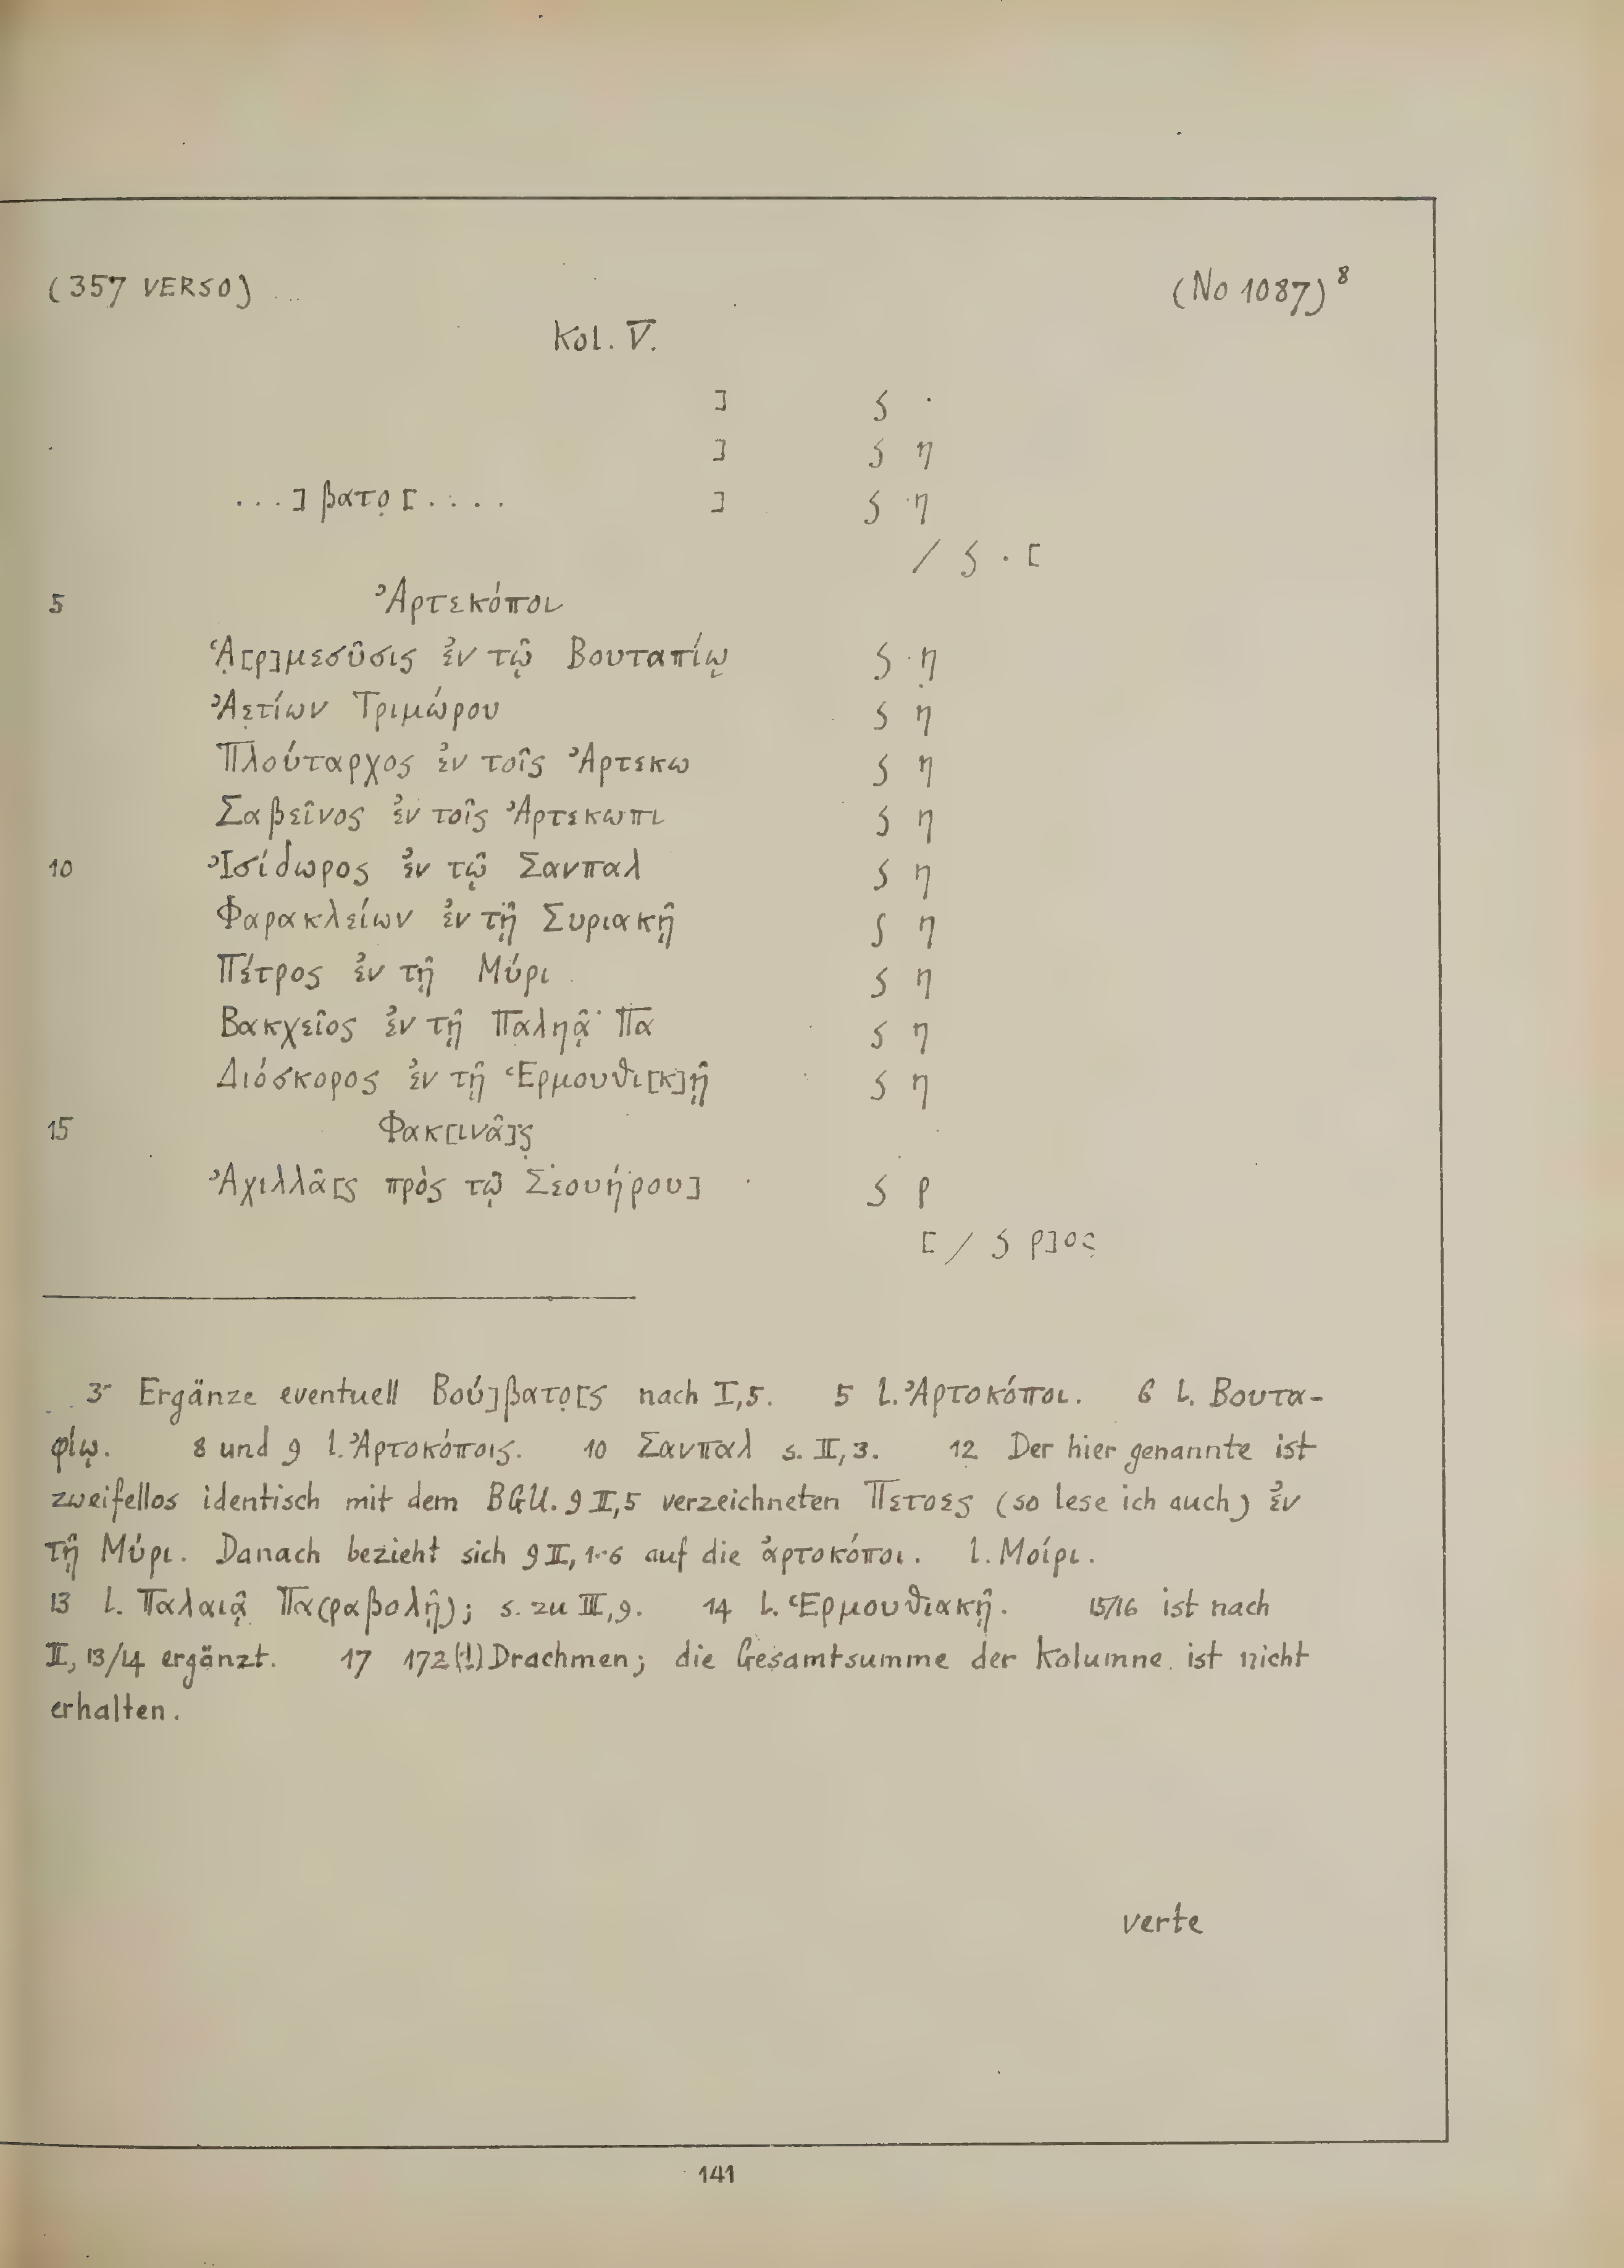 (357 VERSO)
(No 1087)⁸
Kol. V.
] ʃ .
] ʃ η
...] βατọ[.... ] ʃ η
/ ʃ . [
5 Ἀρτεκόποι
Ἁ̣[ρ]μεσῦσις ἐν τῷ Βουταπίῳ ʃ η̣
Ἀε̣τίων Τριμώρου ʃ η
Πλούταρχος ἐν τοῖς Ἀρτεκω ʃ η
Σαβεῖνος ἐν τοῖς Ἀρτεκωπι ʃ η
10 Ἰσίδωρος ἐν τῷ Σανπαλ ʃ η
Φαρακλείων ἐν τῇ Συριακῇ ʃ η
Πέτρος ἐν τῇ Μύρι ʃ η
Βακχεῖος ἐν τῇ Παληᾷ Πα ʃ η
Διόσκορος ἐν τῇ Ἑρμουθι[κ]ῇ ʃ η
15 Φακ[ινᾶ]ς̣
Ἀχιλλᾶ[ς πρὸς τῷ Σεουήρου] ʃ ρ
[/ ʃ ρ]ος
3 Ergänze eventuell Βού]βατọ[ς nach I,5. 5 l. Ἀρτοκόποι. 6 l. Βουτα-
φίῳ. 8 und 9 l. Ἀρτοκόποις. 10 Σανπαλ s. II,3. 12 Der hier genannte ist
zweifellos identisch mit dem BGU. 9 II,5 verzeichneten Πετοες (so lese ich auch) ἐν
τῇ Μύρι. Danach bezieht sich 9 II, 1-6 auf die ἀρτοκόποι. l. Μοίρι.
13 l. Παλαιᾷ Πα(ραβολῇ); s. zu III,9. 14 l. Ἑρμουθιακῇ. 15/16 ist nach
II, 13/14 ergänzt. 17 172(!) Drachmen; die Gesamtsumme der Kolumne ist nicht
erhalten.
verte
141